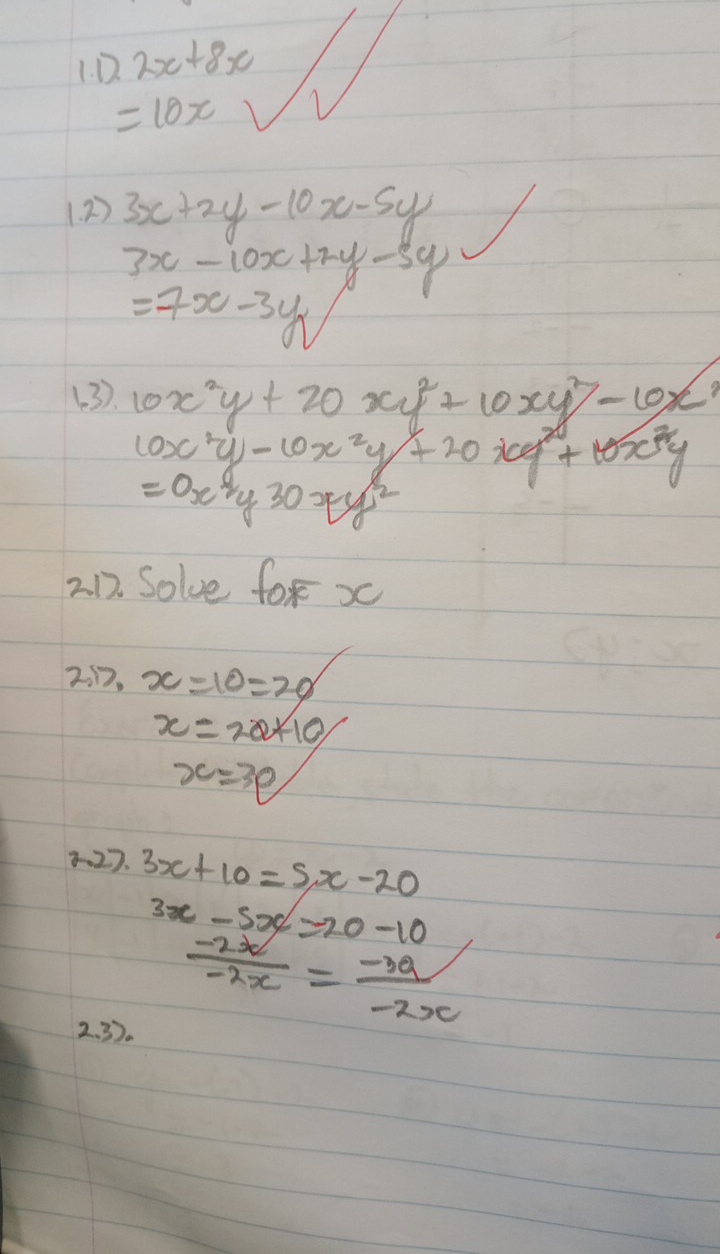 1.1). 2x+8x
= 10x
1.2) 3x+2y-10x-5y
3x-10x+2y-5y
=-7x-3y
1.3). 10x²y + 20xy² + 10xy² - 10x²
10x²y - 10x²y + 20xy² + 10x²y
= 0x²y 30xy²
2.1). Solve for x
2.1). x=10=20
x=20+10
x=30
2.2). 3x+10=5x-20
3x-5x=-20-10
-2x/-2x = -30/-2x
2.3).